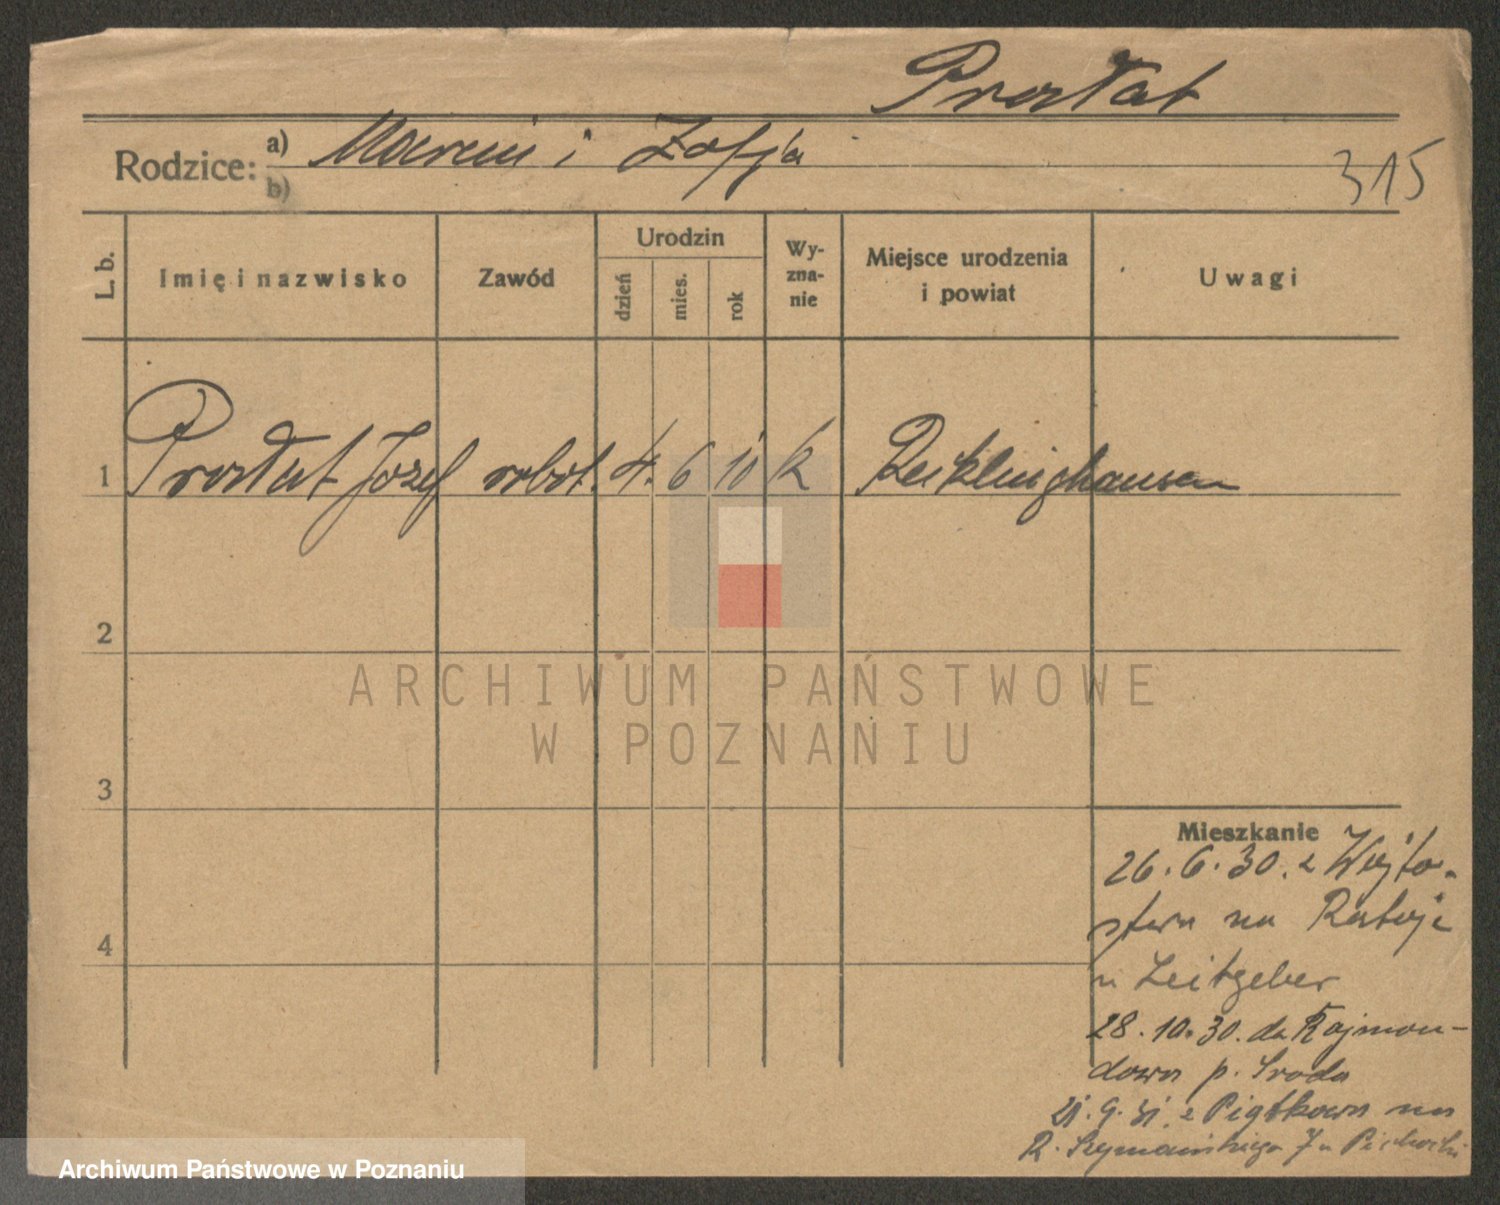 Prostat
Rodzice: a) Marcin i Zofja
b)
315
L. b. Imię i nazwisko Zawód Urodzin dzień mies. rok Wy-zna-nie Miejsce urodzenia i powiat Uwagi
1 Prostat Józef robot. 4. 6 10 k Recklinghausen
2
3
4
Mieszkanie
26.6.30. z Wójto-
stwa na Rataje
u Leitgeber
28.10.30. do Rajmon-
dowa p. Sroda
21.9.31. z Piątkowa na
R. Szymańskiego 7 u
ARCHIWUM PAŃSTWOWE
W POZNANIU
Archiwum Państwowe w Poznaniu